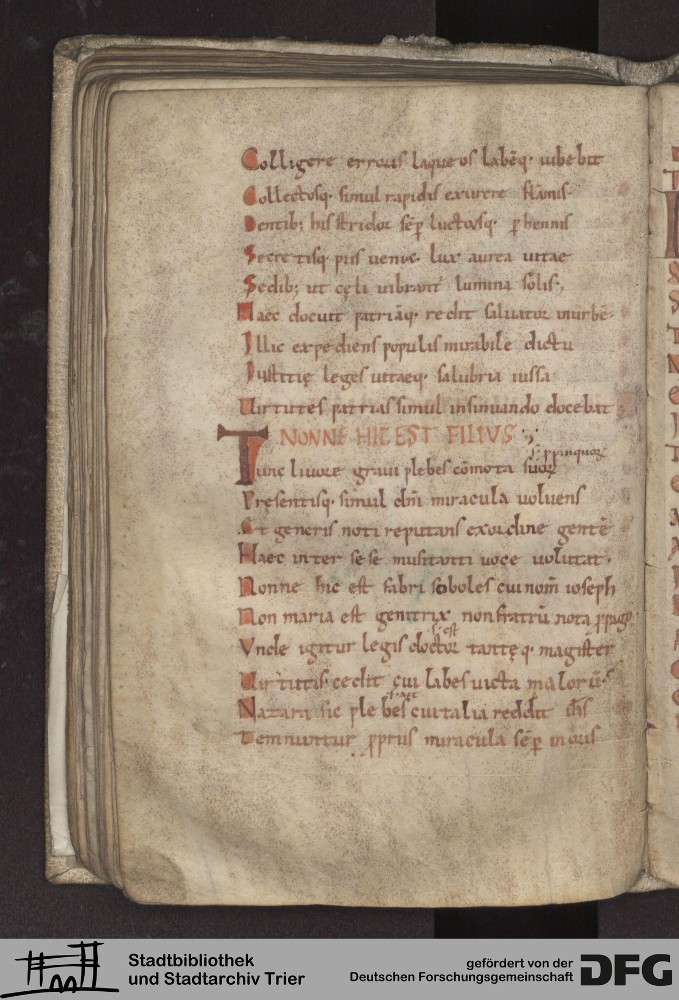 Colligere erroris laqueos labēq· iubebit
Collectosq· simul rapidis exurere flāmis·
Dentib; his stridor sēp luctusq· phennis
Secretisq· piis veniet lux aurea uitae
Sedib; ut cęli uibrant lumina solis·,
Haec docuit patriāq· redit saluator inurbē·
Illic expediens populis mirabile dictu
Iustitię leges uitaeq· salubria iussa
Uirtutes patrias simul insinuando docebat
NONNE HIC EST FILIVS
s· ppinquorꝝ
Tunc liuore graui plebes cōmota suorꝝ
Pręsentisq· simul dn̄i miracula voluens
Et generis noti reputans exordine gentē
Haec inter sese musitanti uoce uolutat·
Nonne hic est fabri soboles cui nom̄ ioseph
Non maria est genitrix non fratrū nota ppago
s· est
Vnde igitur legis doctor tantęq· magister
Uirtutis cedit cui labes uicta malorū·
Nazara sic plebes cui talia reddit ih̄s
Temnuntur pprus miracula sēp in oris
Stadtbibliothek
und Stadtarchiv Trier
gefördert von der
Deutschen Forschungsgemeinschaft
DFG